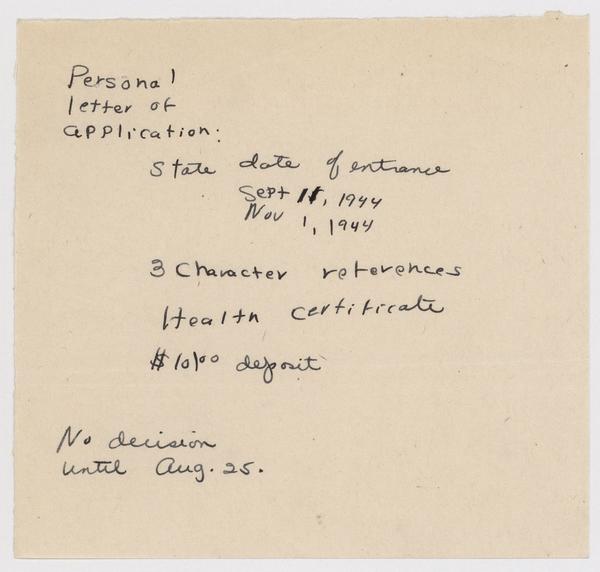 Personal
letter of
application:
State date of entrance
Sept 11, 1944
Nov 1, 1944
3 Character references
Health certificate
$10.00 deposit
No decision
until Aug. 25.